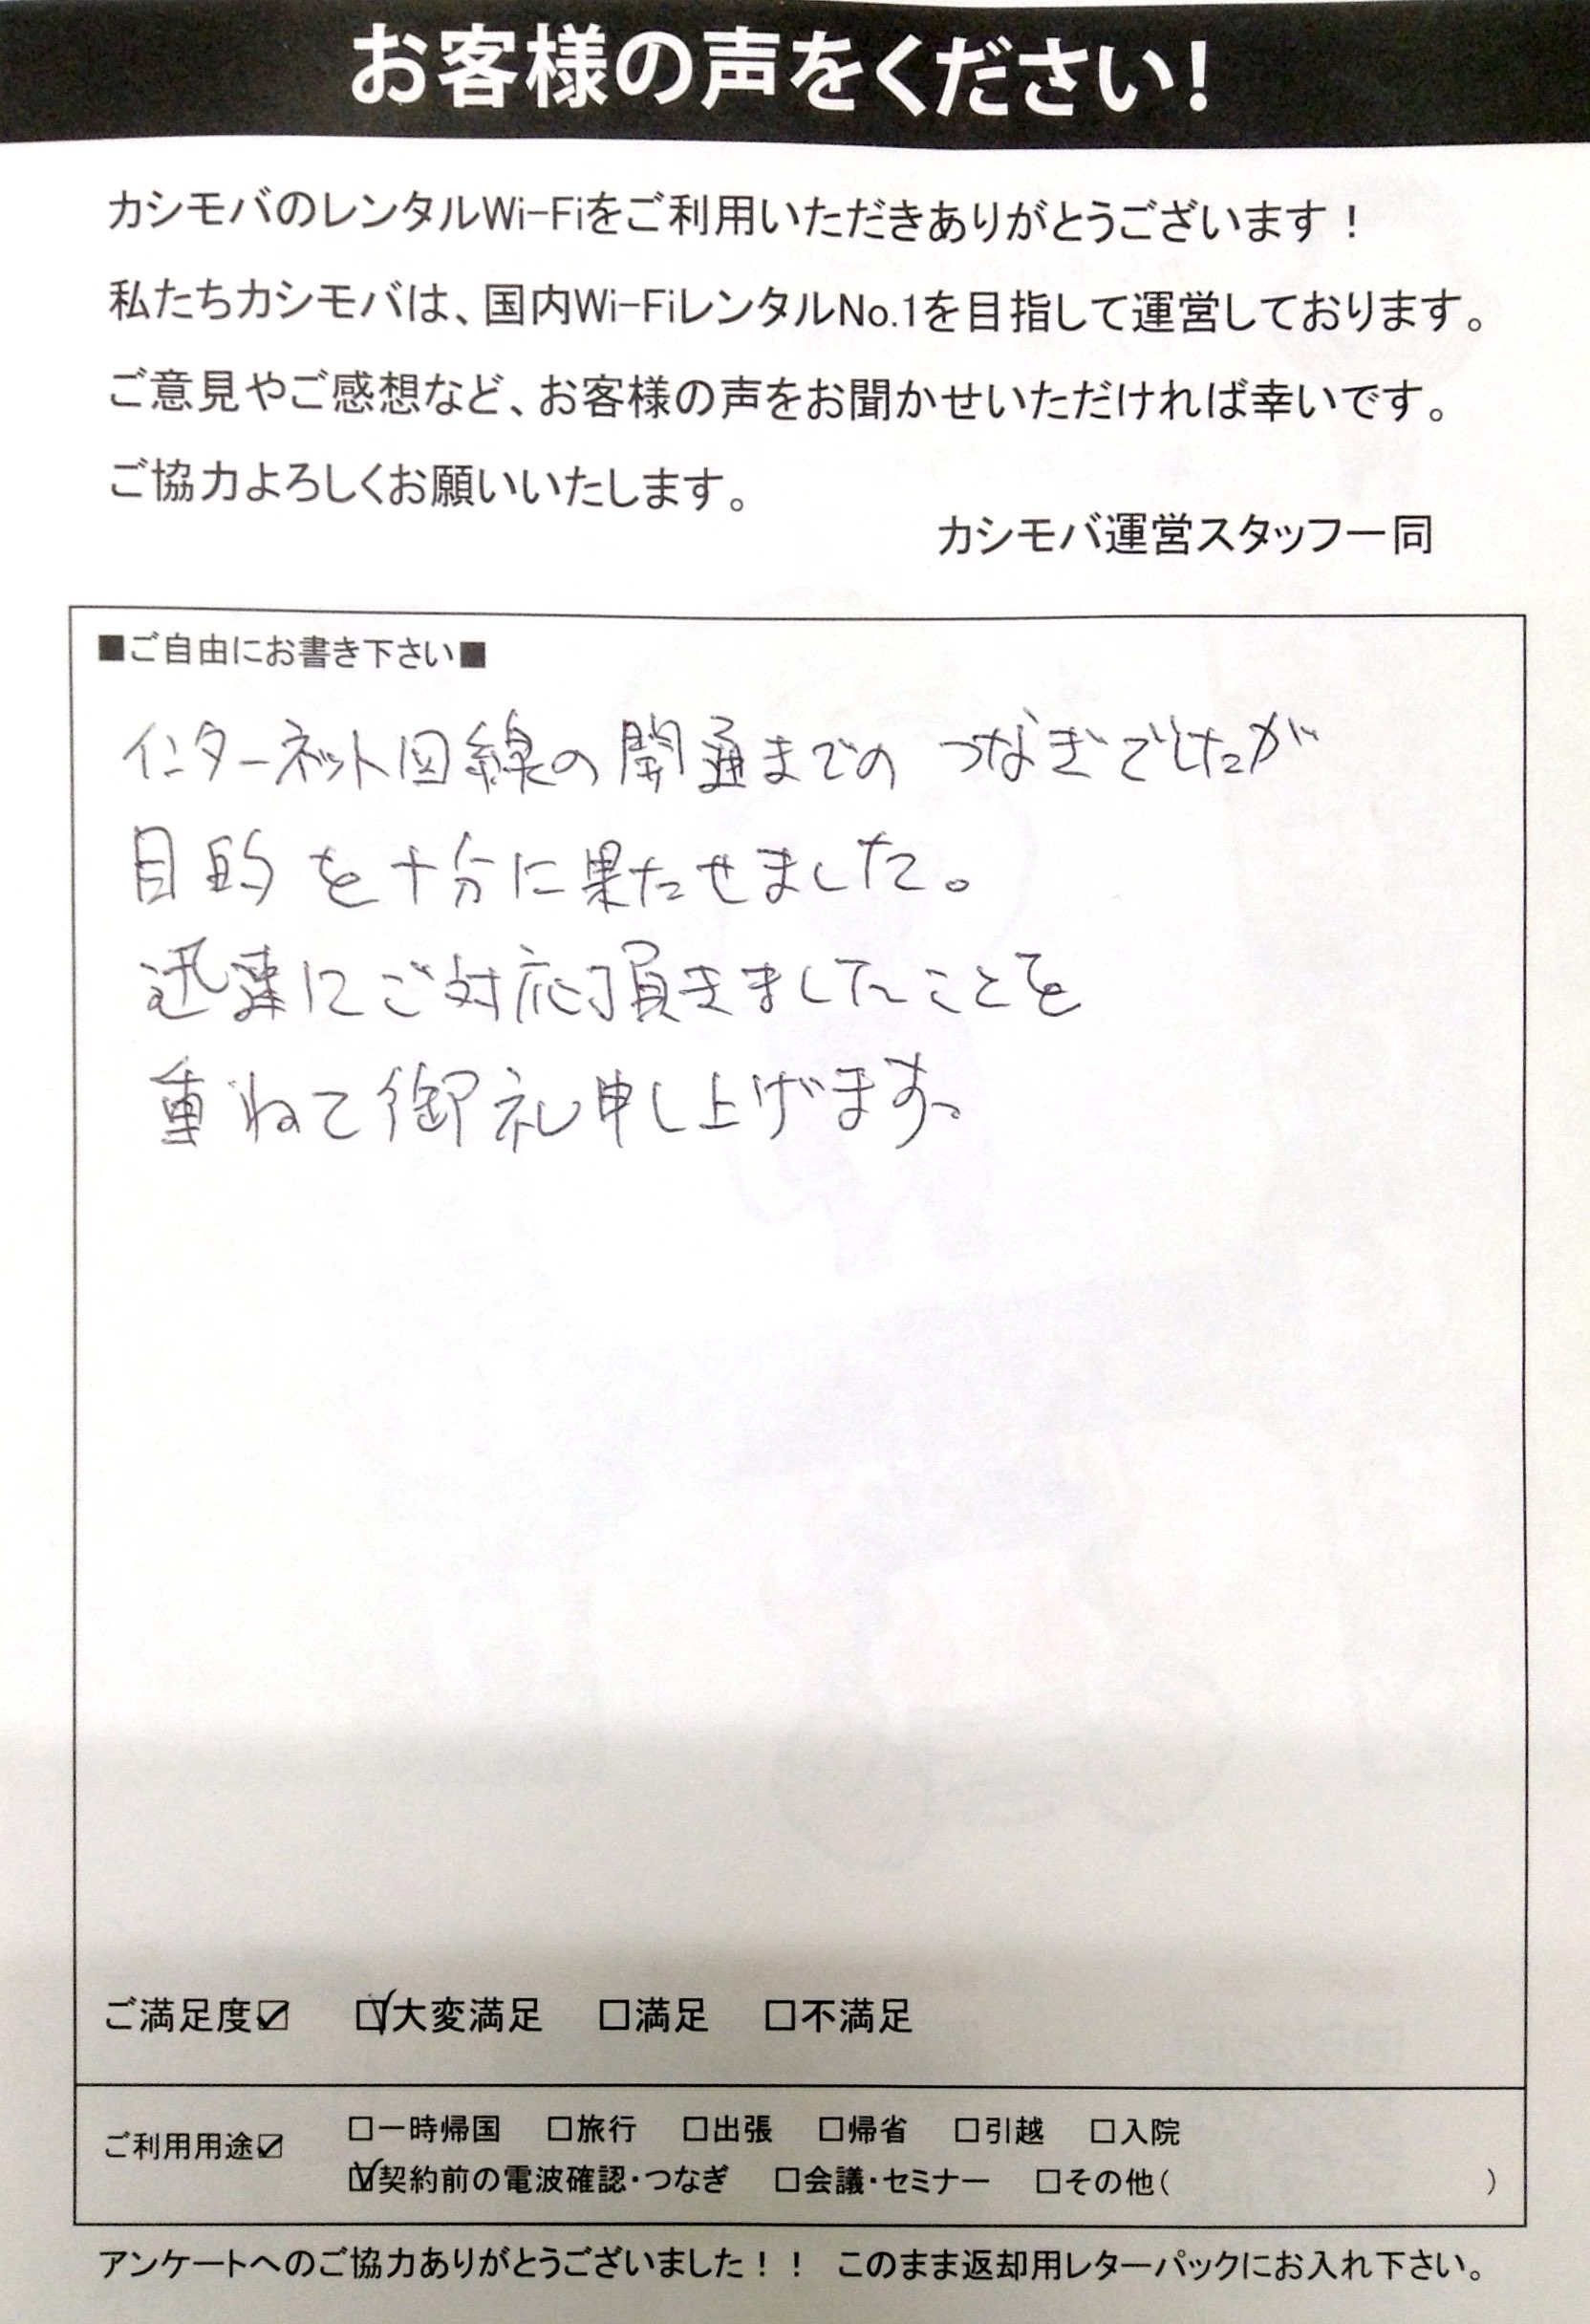 お客様の声をください!
カシモバのレンタルWi-Fiをご利用いただきありがとうございます！
私たちカシモバは、国内Wi-FiレンタルNo.1を目指して運営しております。
ご意見やご感想など、お客様の声をお聞かせいただければ幸いです。
ご協力よろしくお願いいたします。
カシモバ運営スタッフ一同
■ご自由にお書き下さい■
インターネット回線の開通までの つなぎでしたが
目的を十分に果たせました。
迅速にご対応頂きましたことを
重ねて御礼申し上げます。
ご満足度☑ ☑大変満足 □満足 □不満足
ご利用用途☑ □一時帰国 □旅行 □出張 □帰省 □引越 □入院
☑契約前の電波確認・つなぎ □会議・セミナー □その他( )
アンケートへのご協力ありがとうございました！！ このまま返却用レターパックにお入れ下さい。